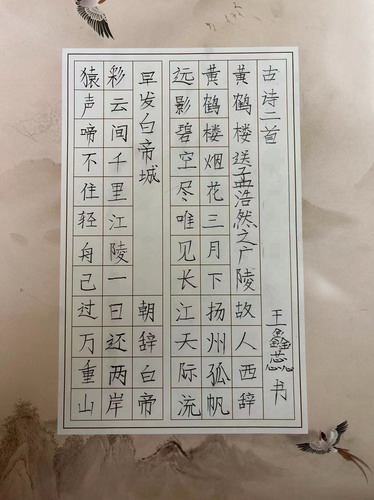 古诗二首 王鑫蕊书
黄鹤楼送孟浩然之广陵 故人西辞
黄鹤楼烟花三月下扬州孤帆
远影碧空尽唯见长江天际流
早发白帝城 朝辞白帝
彩云间千里江陵一日还两岸
猿声啼不住轻舟己过万重山